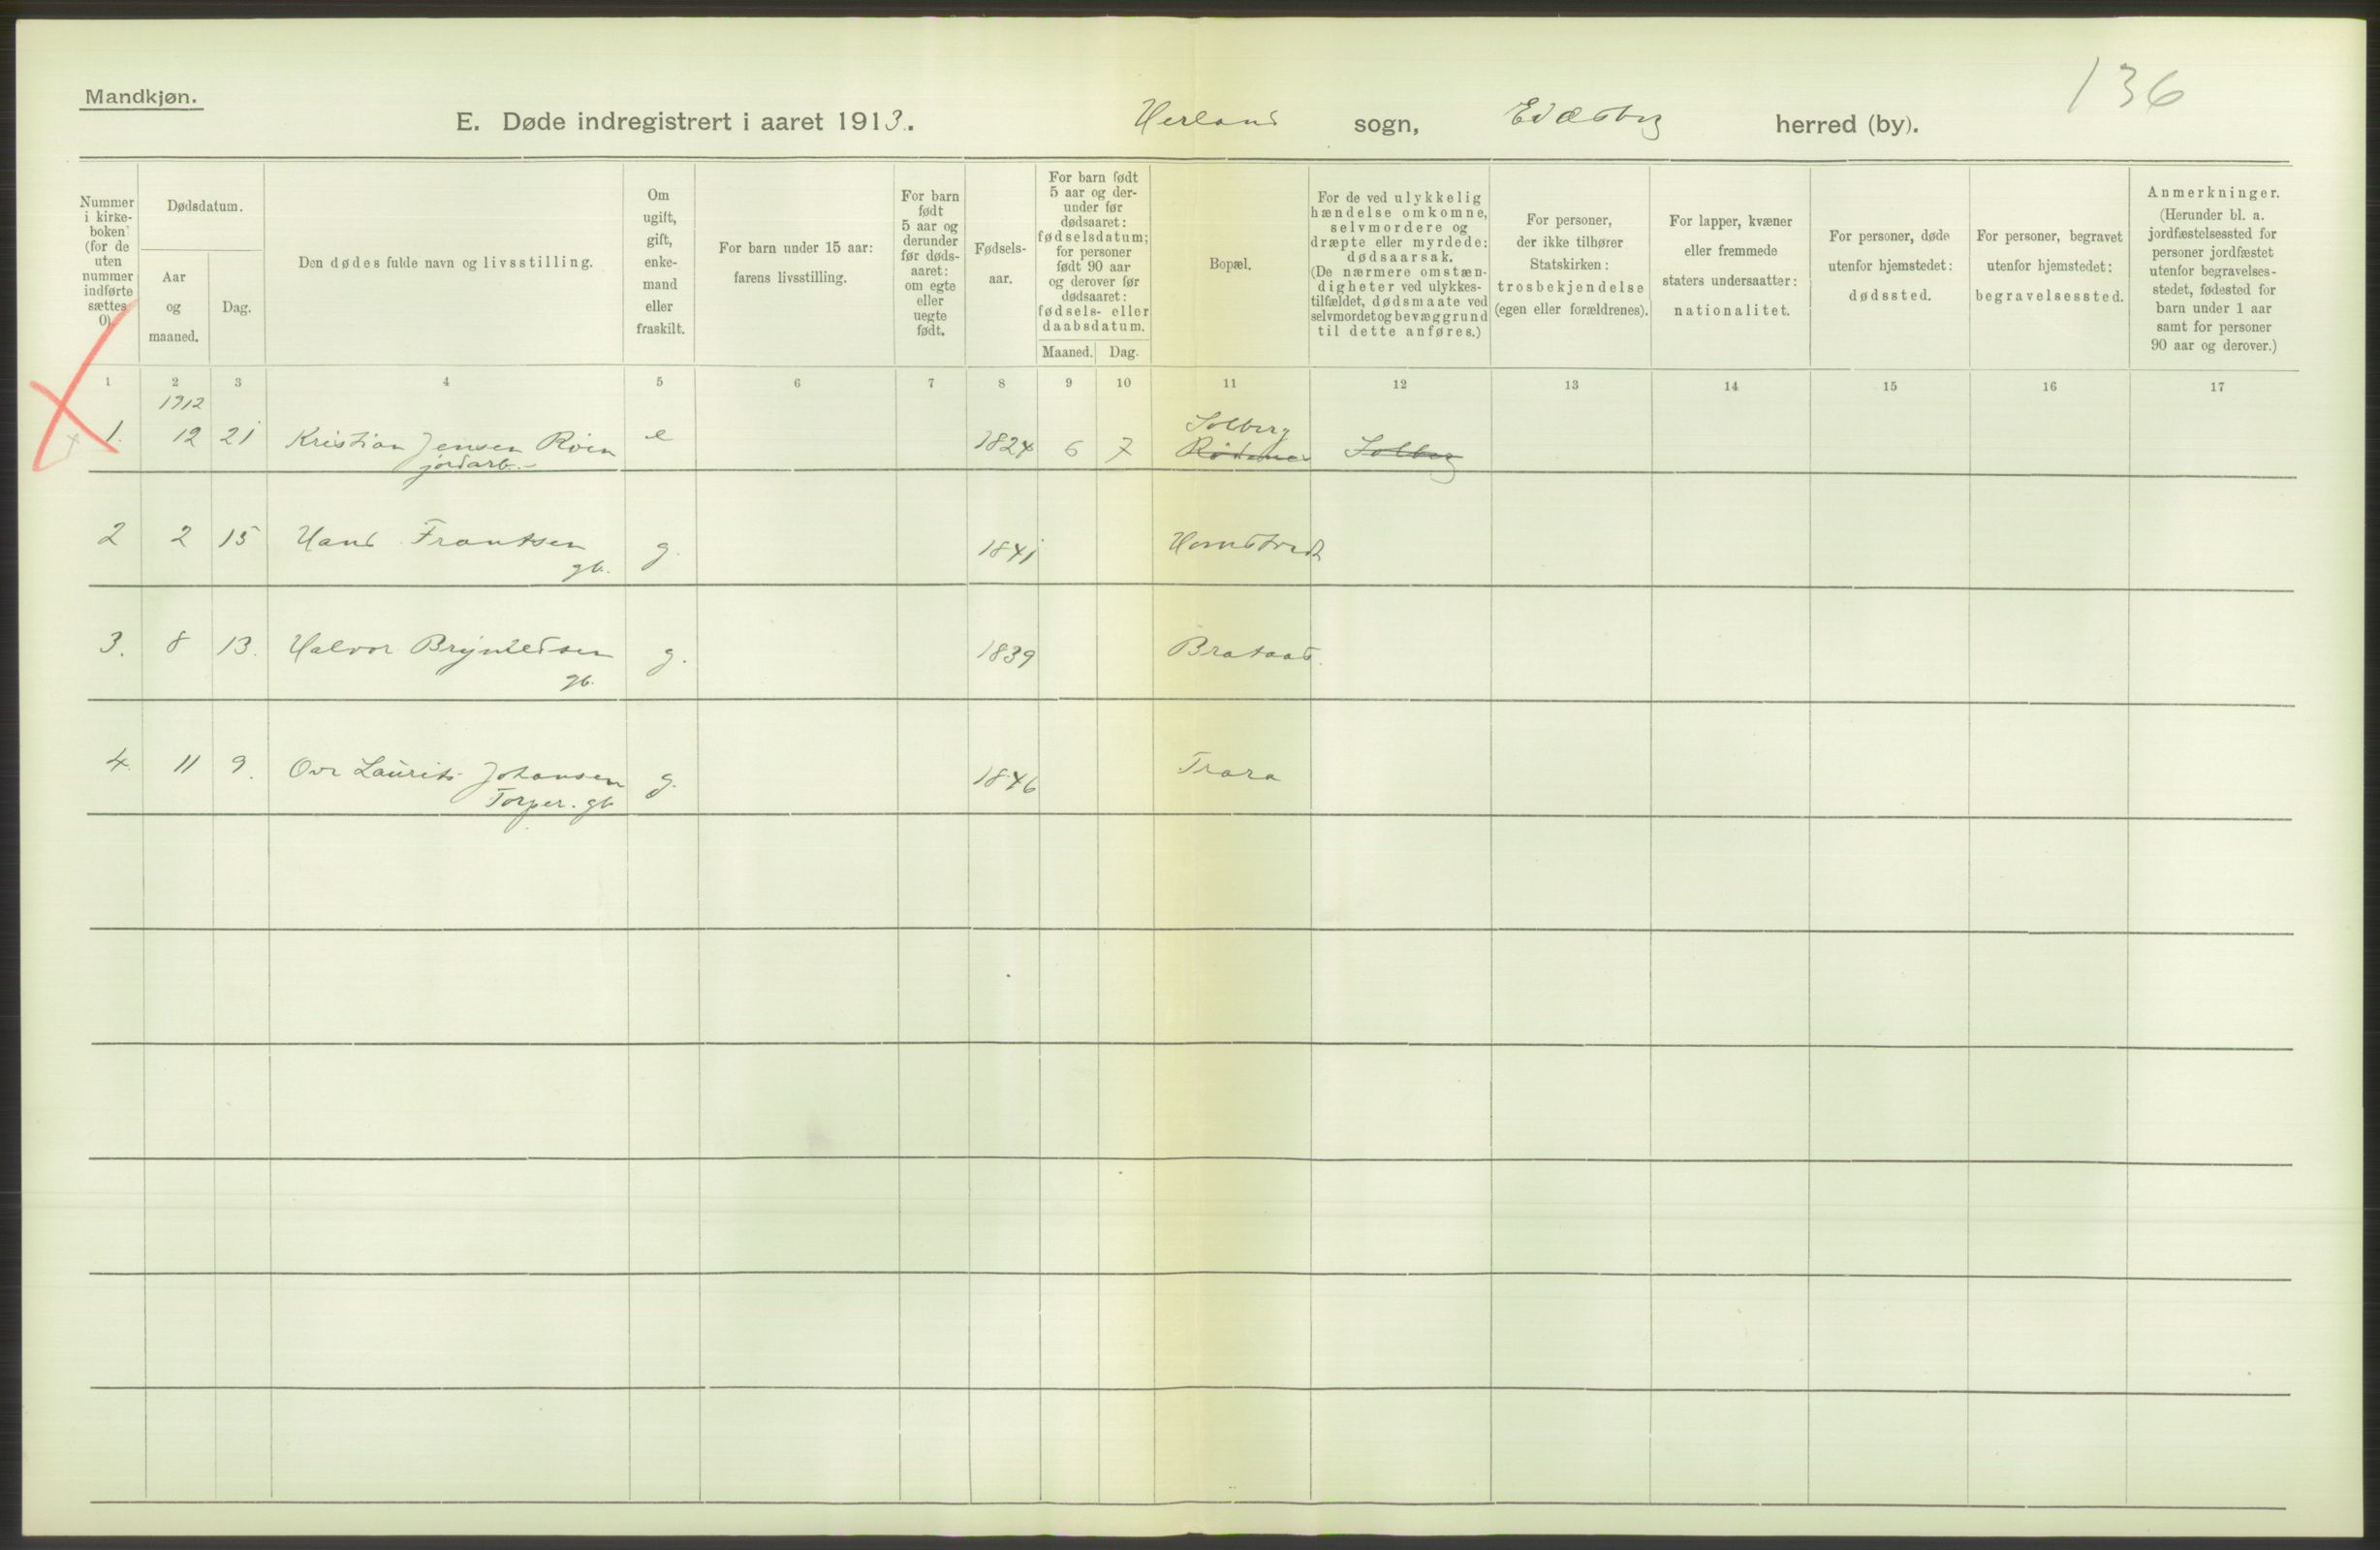 136
Mandkjøn.
E. Døde indregistrert i aaret 1913. Herland sogn, Eidsberg herred (by).
Nummer i kirke- boken (for de uten nummer indførte sættes 0).
Dødsdatum.
Aar og maaned.
Dag.
Den dødes fulde navn og livsstilling.
Om ugift, gift, enke- mand eller fraskilt.
For barn under 15 aar: farens livsstilling.
For barn født 5 aar og derunder før døds- aaret: om egte eller uegte født.
Fødsels- aar.
For barn født 5 aar og der- under før dødsaaret: fødselsdatum; for personer født 90 aar og derover før dødsaaret: fødsels- eller daabsdatum.
Maaned. Dag.
Bopæl.
For de ved ulykkelig hændelse omkomne, selvmordere og dræpte eller myrdede: dødsaarsak. (De nærmere omstæn- digheter ved ulykkes- tilfældet, dødsmaate ved selvmordet og bevæggrund til dette anføres.)
For personer, der ikke tilhører Statskirken: trosbekjendelse (egen eller forældrenes).
For lapper, kvæner eller fremmede staters undersaatter: nationalitet.
For personer, døde utenfor hjemstedet: dødssted.
For personer, begravet utenfor hjemstedet: begravelsessted.
Anmerkninger. (Herunder bl. a. jordfæstelsessted for personer jordfæstet utenfor begravelses- stedet, fødested for barn under 1 aar samt for personer 90 aar og derover.)
1 2 3 4 5 6 7 8 9 10 11 12 13 14 15 16 17
1912
Solberg
1. 12 21 Kristian Jensen Roen e 1824 6 7 Solberg
jordarb.
2 2 15 Hans Frantsen g. 1841
gb.
3. 8 13. Halvor Brynildsen g. 1839 Brataas.
gb.
4. 11 9. Ove Laurits Johansen g. 1846 Trara
Torper. gb